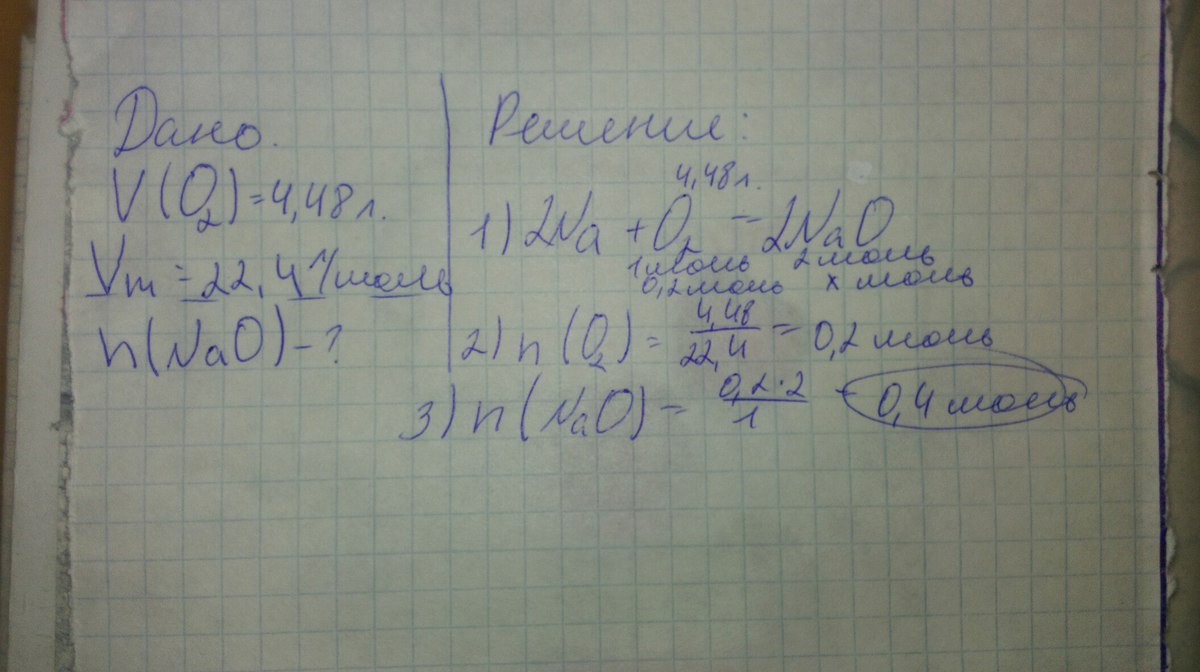 Дано.
V(O₂)=4,48 л.
Vm = 22,4 л/моль
n(NaO) - ?
Решение:
4,48 л.
1) 2Na + O₂ = 2NaO
1 моль 2 моль
0,2 моль x моль
2) n(O₂) = 4,48/22,4 = 0,2 моль
3) n(NaO) = 0,2·2/1 = 0,4 моль